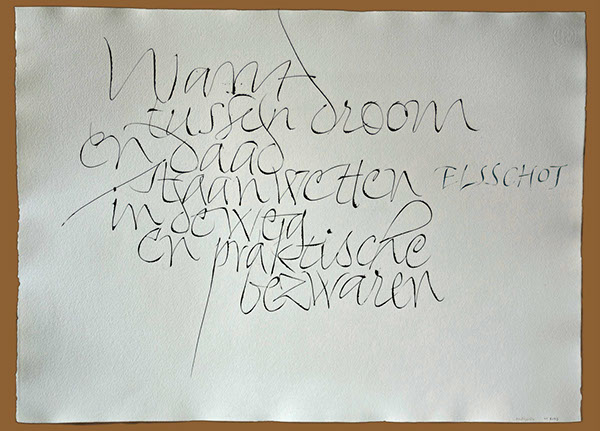 Want
tussen droom
en daad
staan wetten
in de weg
en praktische
bezwaren
ELSSCHOT